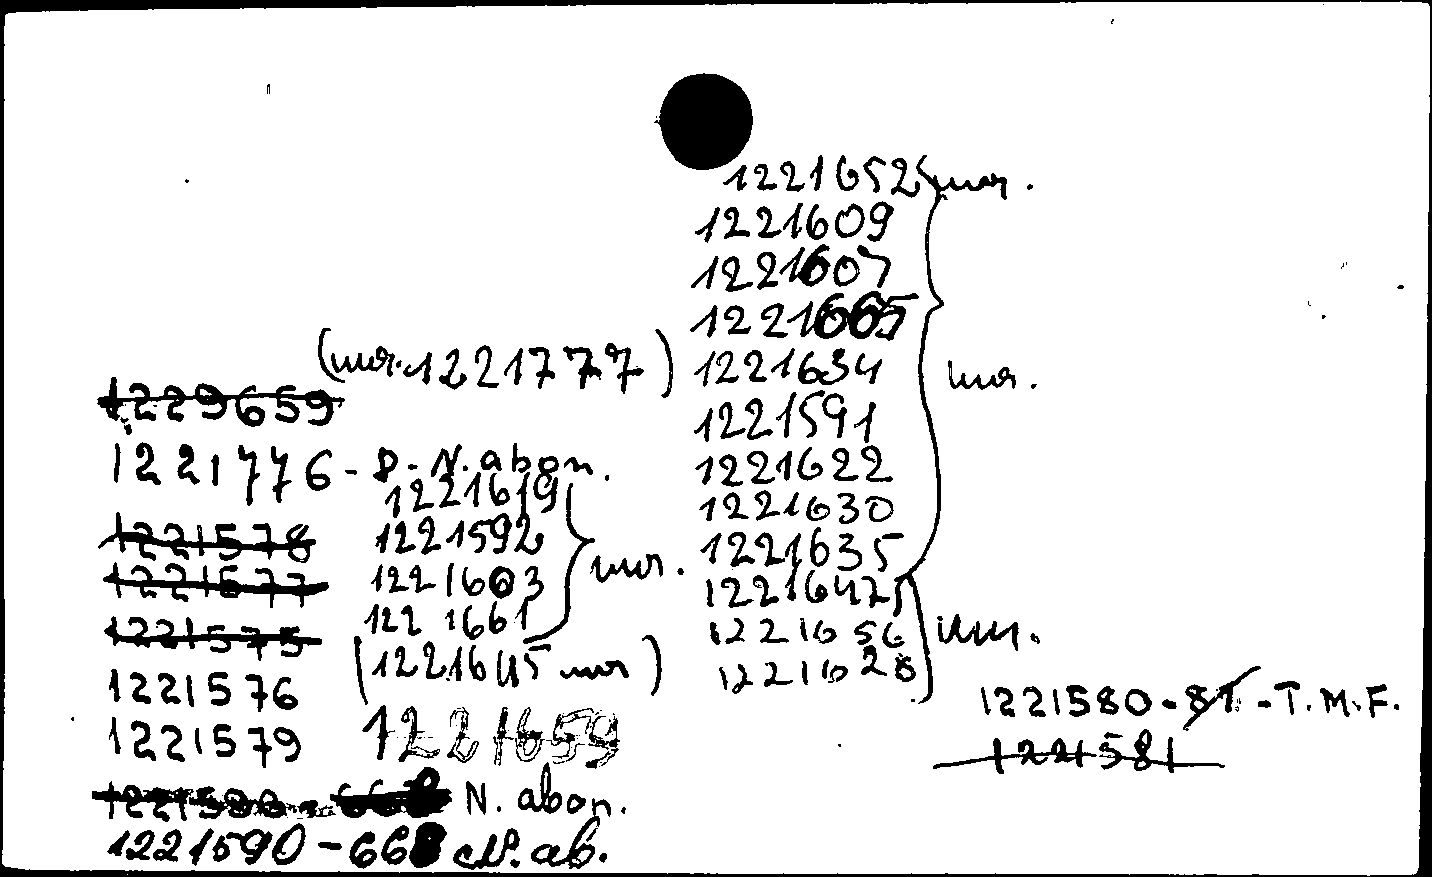 (mor. 1221777)
1229659
1221776 - D. N. abon.
1221578
1221577
1221575
1221576
1221579
N. abon.
1221590 - 668 N. ab.
1221619
1221592
1221603
1221661
mor.
(1221645 mor)
1221659
1221652 mor.
1221609
1221607
1221665
1221634
1221591
1221622
1221630
1221635
mor.
1221647
1221656
1221628
mor.
1221580 - 81 - T.M.F.
1221581